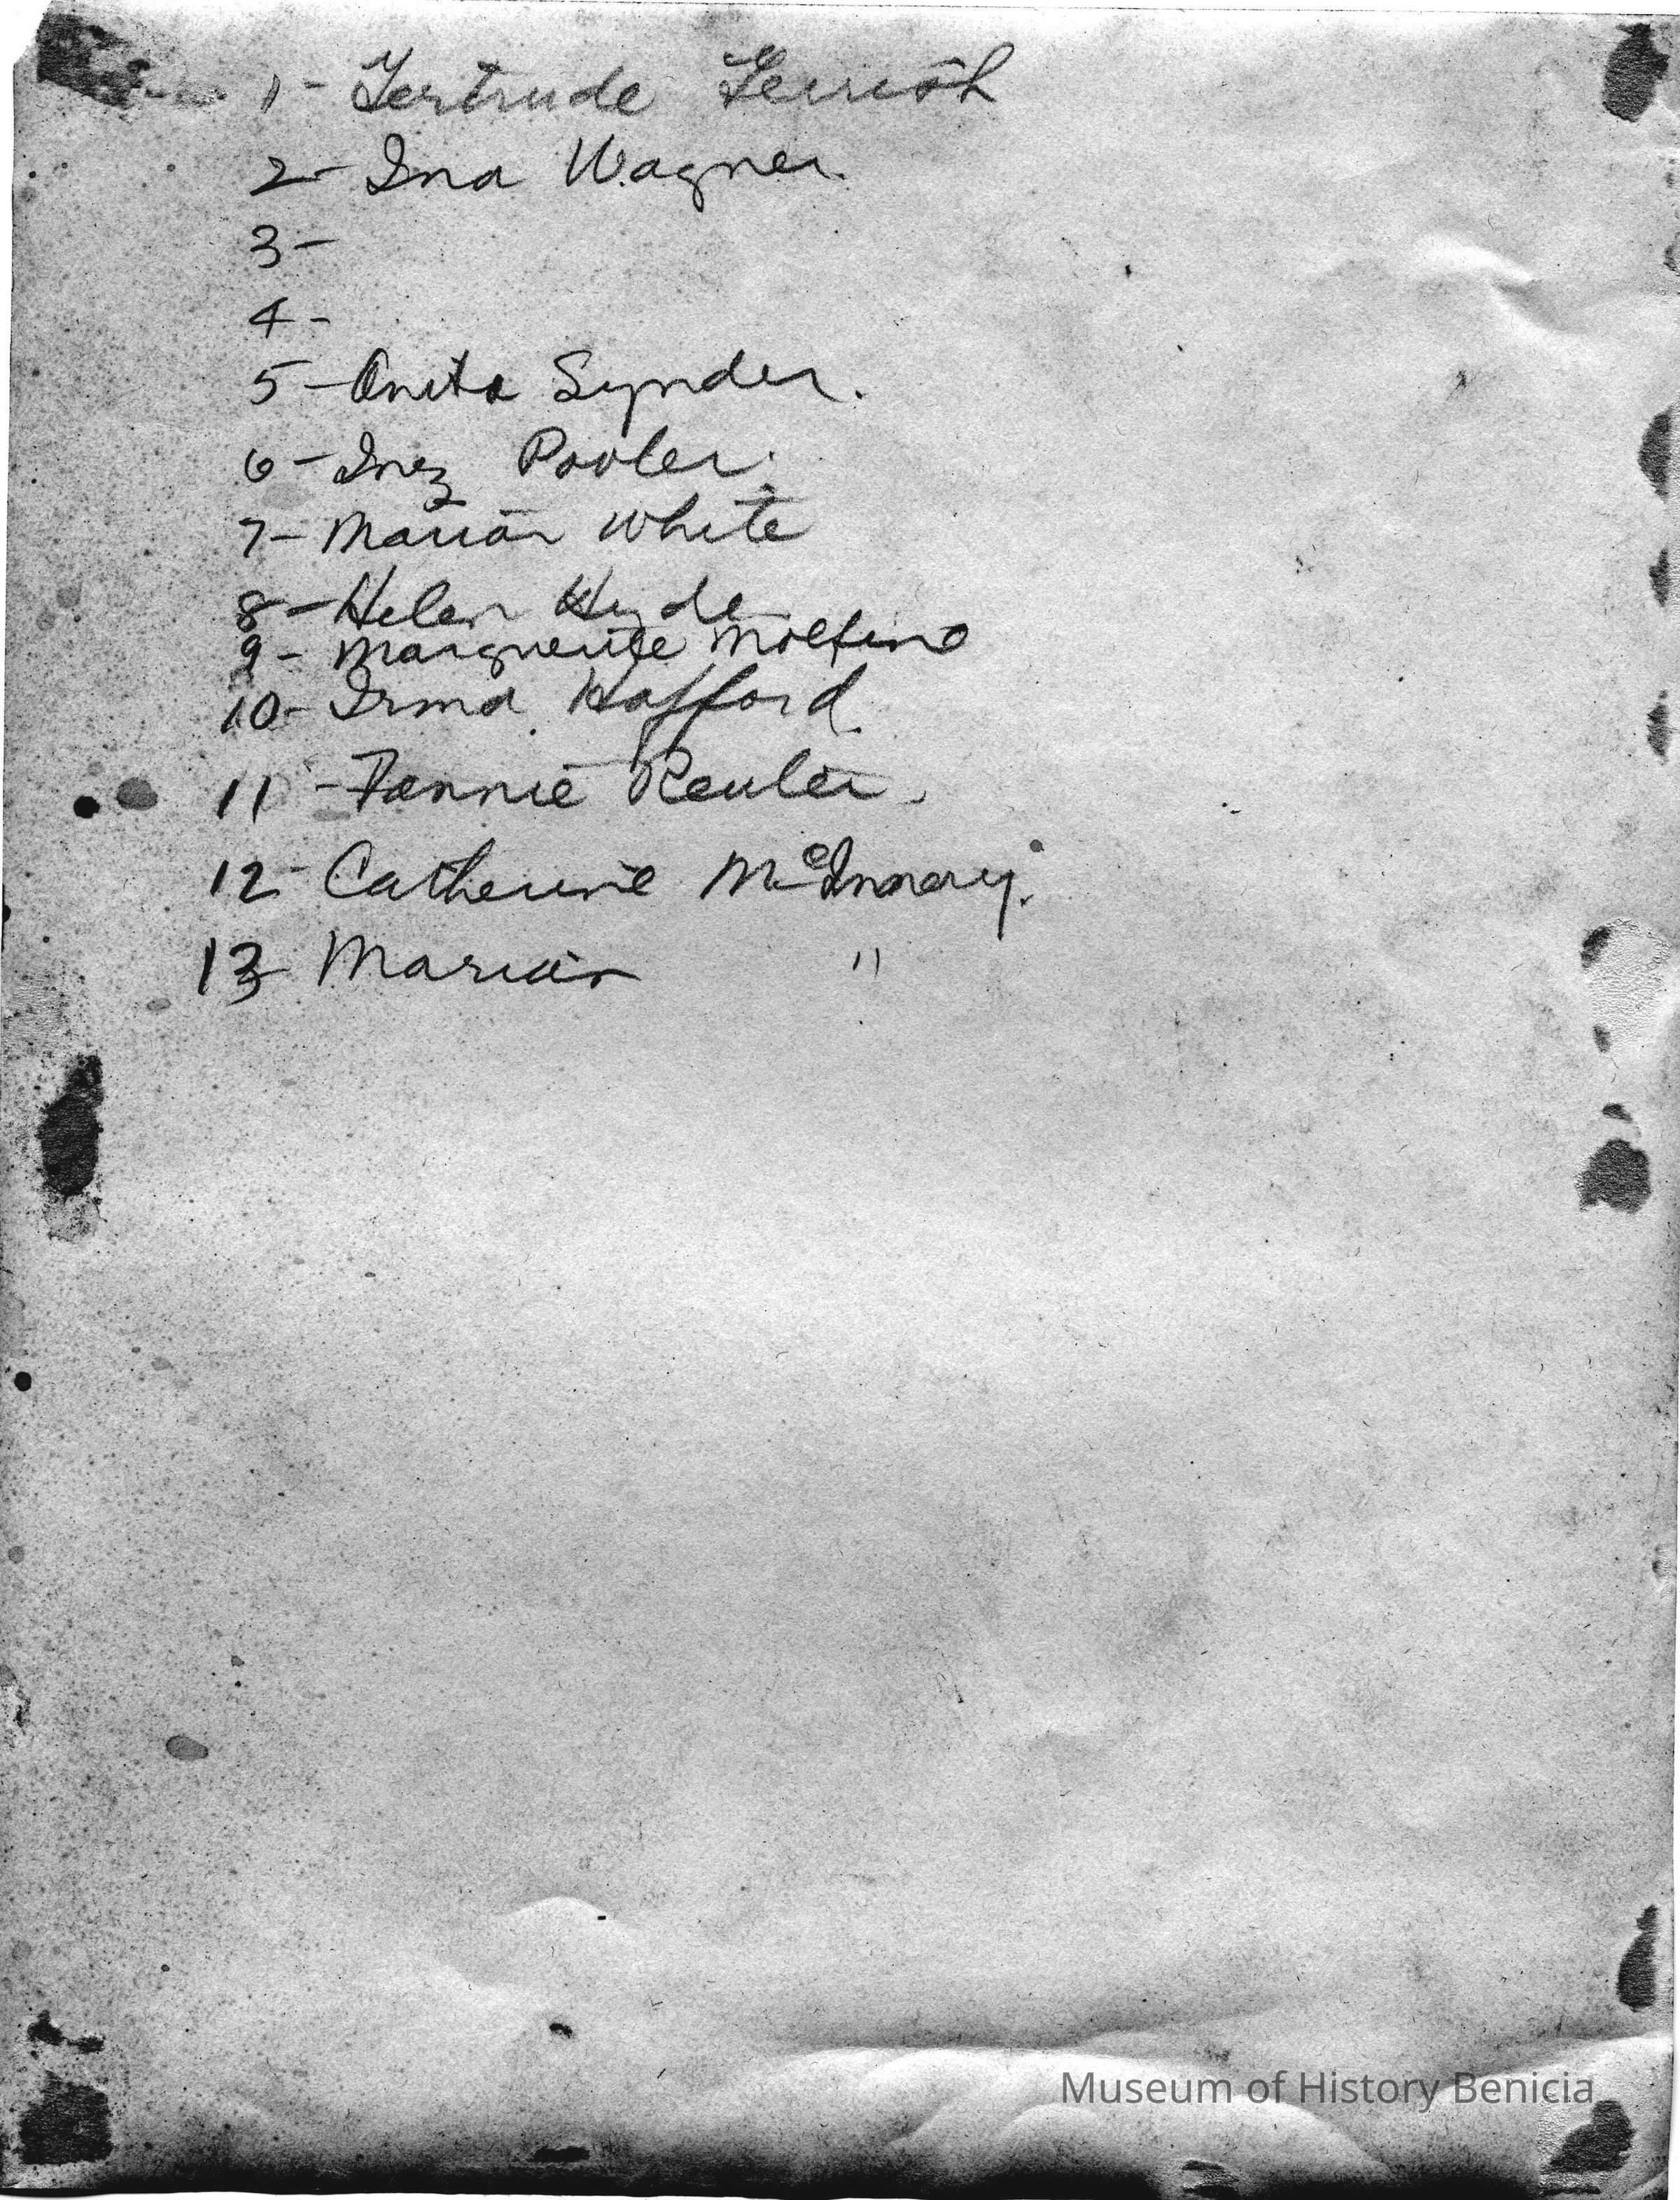 1- Gertrude
2- Ina Wagner.
3-
4-
5- Anita Synder.
6- Inez Pooler.
7- Marian White
8- Helen Hyde
9- Marguerite Molfino
10- Irma Hafford.
11- Fannie Reuler.
12- Catherine
13- Marian "
Museum of History Benicia